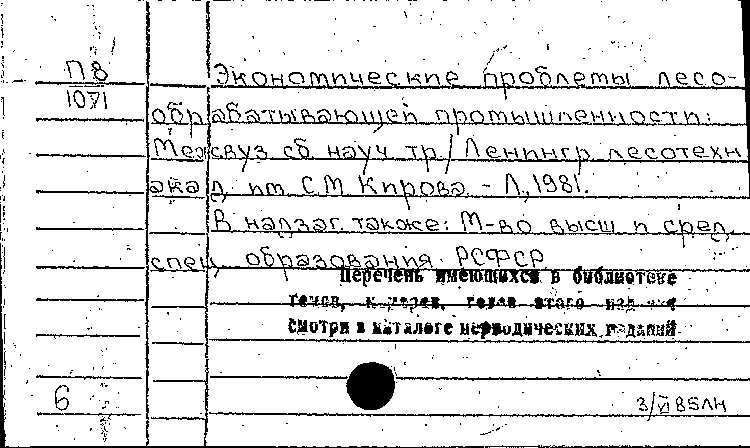 П8
1071
Экономические проблемы лесо-
обрабатывающей промышленности:
Межвуз сб науч тр/Ленингр лесотехн
акад им С М Кирова - Л, 1981.
В надзаг также: М-во высш и сред.
спец образования РСФСР
Перечень имеющихся в библиотеке
томов, номеров, годов этого издания
смотри в каталоге периодических изданий
6
3/VI 85ЛН